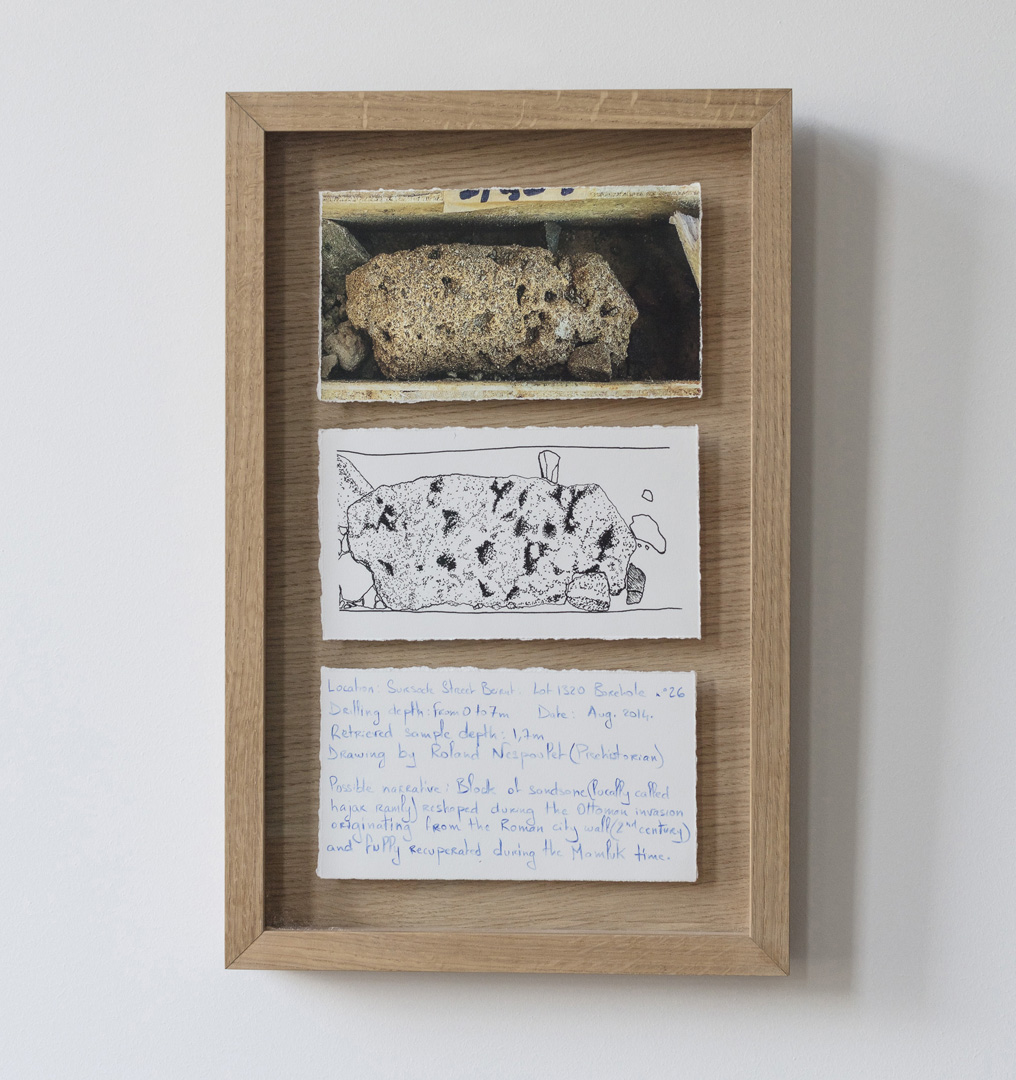 Location: Sursock Street Beirut: Lot 1320 Borehole n°26
Drilling depth: From 0 to 7m Date: Aug. 2014.
Retrieved sample depth: 1,7m
Drawing by Roland Nespoulet (Prehistorian)
Possible narrative: Block of sandsone (locally called
hajar ramly) reshaped during the Ottoman invasion
originating from the Roman city wall (2nd century)
and fully recuperated during the Mamluk time.